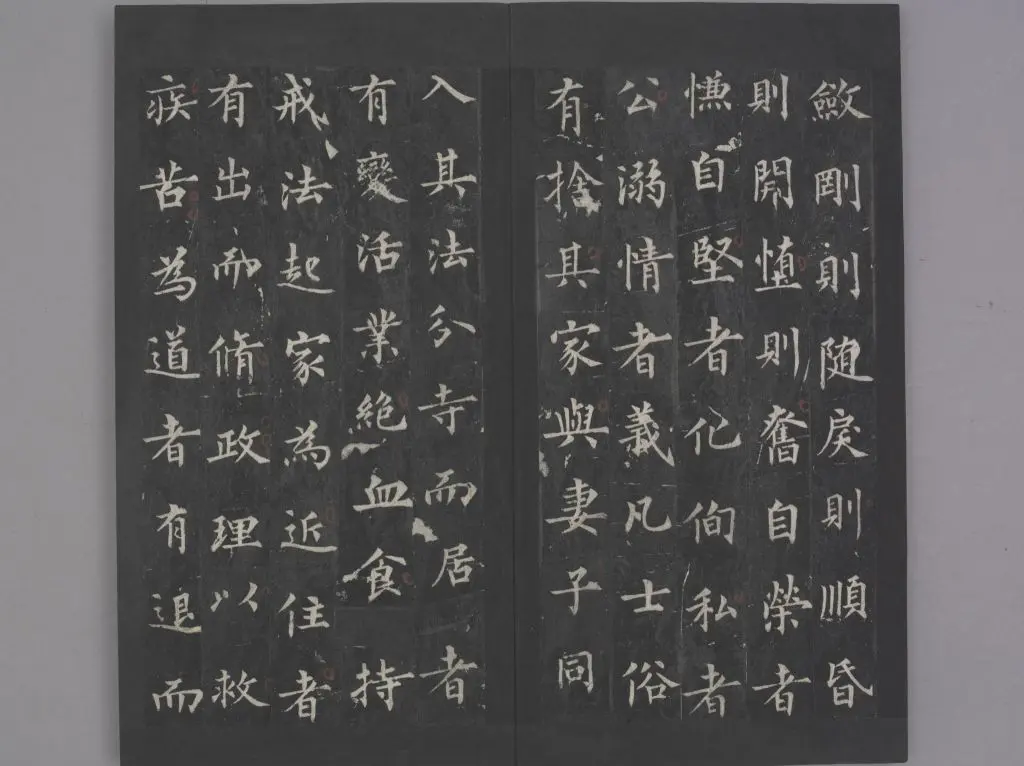 斂剛則随戾則順昏
則開憜則奮自榮者
慊自堅者化徇私者
公溺情者義凡士俗
有捨其家與妻子同
入其法分寺而居者
有變活業絕血食持
戒法起家為近住者
有出而脩政理以救
疾苦為道者有退而